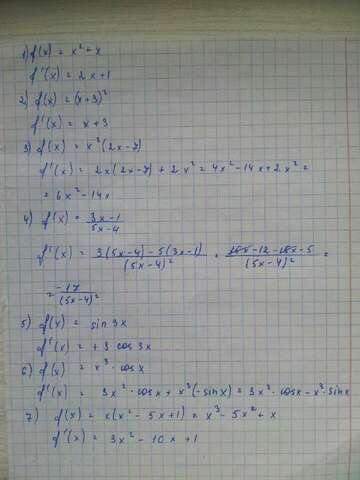 1) f(x) = x² + x
f'(x) = 2x + 1
2) f(x) = (x+3)²
f'(x) = x + 3
3) f(x) = x²(2x-7)
f'(x) = 2x(2x-7) + 2x² = 4x² - 14x + 2x² =
= 6x² - 14x
4) f(x) = \frac{3x-1}{5x-4}
f'(x) = \frac{3(5x-4) - 5(3x-1)}{(5x-4)²} = \frac{15x - 12 - 15x - 5}{(5x-4)²} =
= \frac{-17}{(5x-4)²}
5) f(x) = sin 3x
f'(x) = +3 cos 3x
6) f(x) = x³ · cos x
f'(x) = 3x² · cos x + x³(-sin x) = 3x² · cos x - x³ sin x
7) f(x) = x(x² - 5x + 1) = x³ - 5x² + x
f'(x) = 3x² - 10x + 1